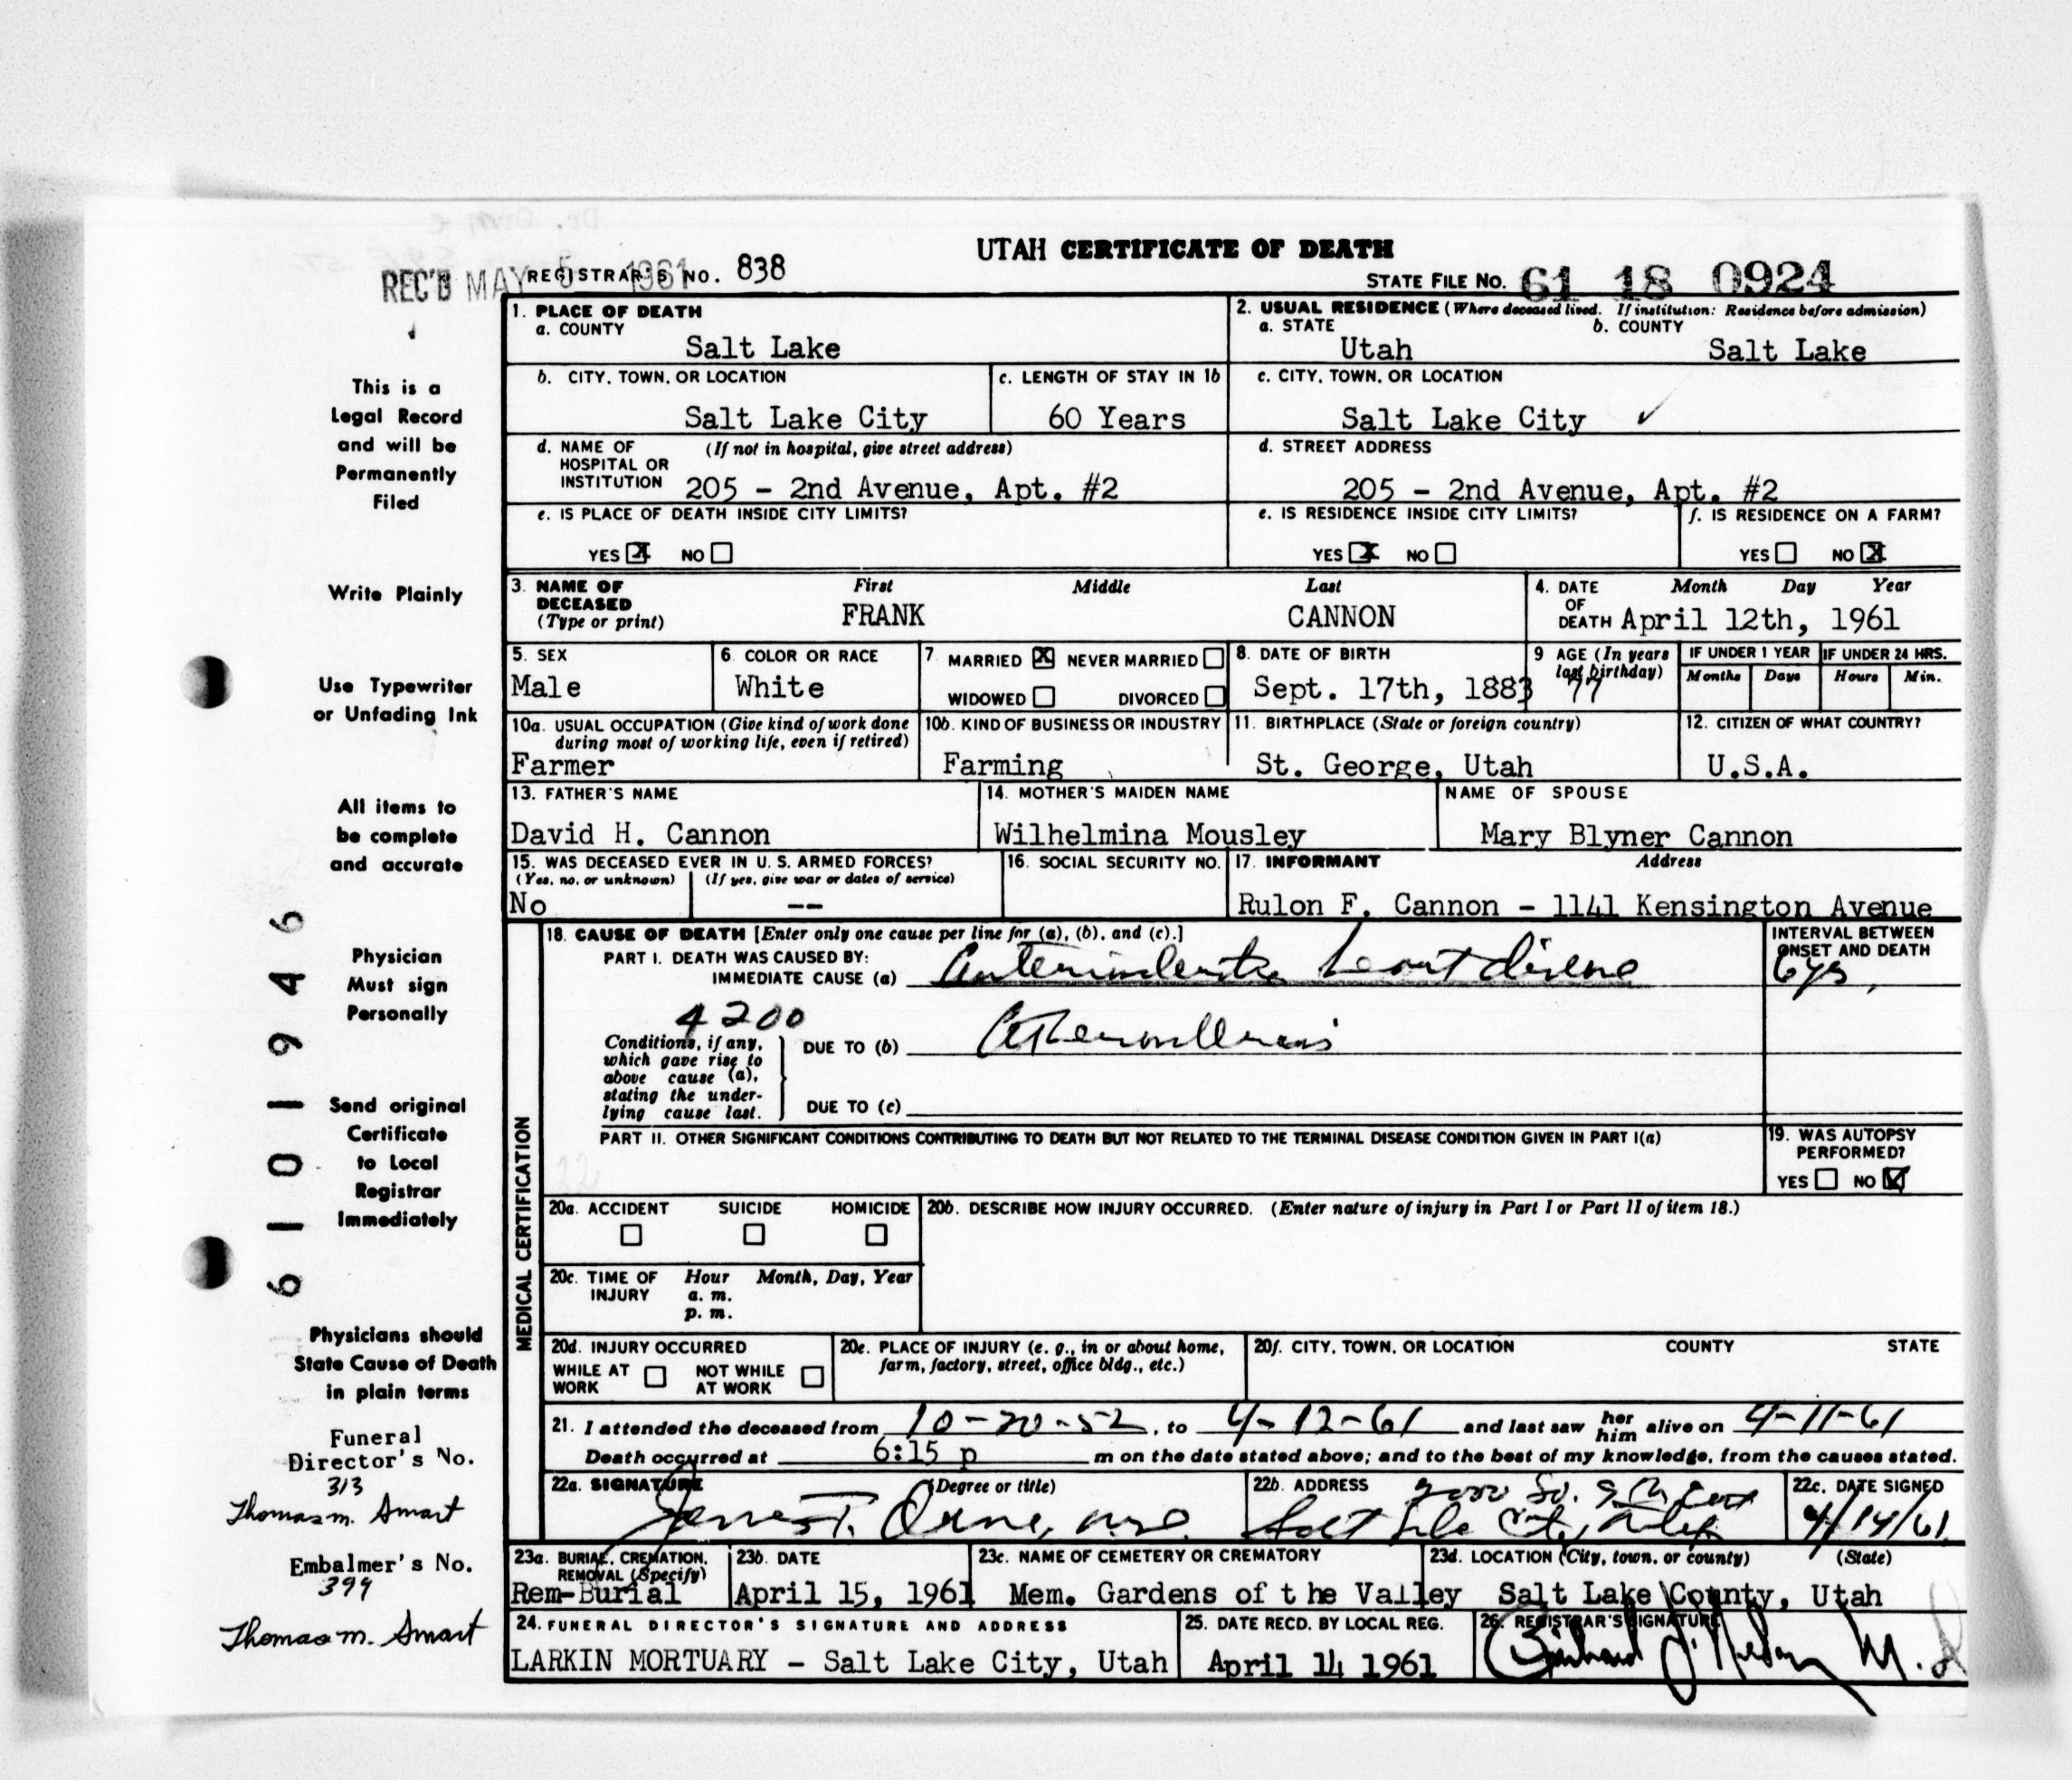 UTAH CERTIFICATE OF DEATH
REC'D MAY 5 1961 REGISTRAR'S NO. 838
STATE FILE NO. 61 18 0924
1. PLACE OF DEATH
a. COUNTY
Salt Lake
2. USUAL RESIDENCE (Where deceased lived. If institution: Residence before admission)
a. STATE b. COUNTY
Utah Salt Lake
b. CITY, TOWN, OR LOCATION
Salt Lake City
c. LENGTH OF STAY IN 1b
60 Years
c. CITY, TOWN, OR LOCATION
Salt Lake City ✓
d. NAME OF HOSPITAL OR INSTITUTION (If not in hospital, give street address)
205 - 2nd Avenue, Apt. #2
d. STREET ADDRESS
205 - 2nd Avenue, Apt. #2
e. IS PLACE OF DEATH INSIDE CITY LIMITS?
YES X NO
e. IS RESIDENCE INSIDE CITY LIMITS?
YES X NO
f. IS RESIDENCE ON A FARM?
YES NO X
3. NAME OF DECEASED (Type or print) First Middle Last
FRANK CANNON
4. DATE OF DEATH Month Day Year
April 12th, 1961
5. SEX
Male
6. COLOR OR RACE
White
7. MARRIED X NEVER MARRIED
WIDOWED DIVORCED
8. DATE OF BIRTH
Sept. 17th, 1883
9 AGE (In years last birthday)
77
IF UNDER 1 YEAR IF UNDER 24 HRS.
Months Days Hours Min.
10a. USUAL OCCUPATION (Give kind of work done during most of working life, even if retired)
Farmer
10b. KIND OF BUSINESS OR INDUSTRY
Farming
11. BIRTHPLACE (State or foreign country)
St. George, Utah
12. CITIZEN OF WHAT COUNTRY?
U.S.A.
13. FATHER'S NAME
David H. Cannon
14. MOTHER'S MAIDEN NAME
Wilhelmina Mousley
NAME OF SPOUSE
Mary Blyner Cannon
15. WAS DECEASED EVER IN U. S. ARMED FORCES?
(Yes, no, or unknown) (If yes, give war or dates of service)
No --
16. SOCIAL SECURITY NO.
17. INFORMANT Address
Rulon F. Cannon - 1141 Kensington Avenue
MEDICAL CERTIFICATION
18. CAUSE OF DEATH [Enter only one cause per line for (a), (b), and (c).]
PART I. DEATH WAS CAUSED BY:
IMMEDIATE CAUSE (a) heart disease
INTERVAL BETWEEN ONSET AND DEATH
6 yrs,
4200
Conditions, if any, which gave rise to above cause (a), stating the underlying cause last.
DUE TO (b)
DUE TO (c)
PART II. OTHER SIGNIFICANT CONDITIONS CONTRIBUTING TO DEATH BUT NOT RELATED TO THE TERMINAL DISEASE CONDITION GIVEN IN PART I(a)
19. WAS AUTOPSY PERFORMED?
YES NO X
20a. ACCIDENT SUICIDE HOMICIDE
20b. DESCRIBE HOW INJURY OCCURRED. (Enter nature of injury in Part I or Part II of item 18.)
20c. TIME OF INJURY Hour Month, Day, Year
a. m.
p. m.
20d. INJURY OCCURRED
WHILE AT WORK NOT WHILE AT WORK
20e. PLACE OF INJURY (e. g., in or about home, farm, factory, street, office bldg., etc.)
20f. CITY, TOWN, OR LOCATION COUNTY STATE
21. I attended the deceased from 10-20-52, to 4-12-61 and last saw her him alive on 4-11-61
Death occurred at 6:15 p m on the date stated above; and to the best of my knowledge, from the causes stated.
22a. SIGNATURE (Degree or title)
22b. ADDRESS
Salt Lake City, Utah
22c. DATE SIGNED
4/14/61
23a. BURIAL, CREMATION, REMOVAL (Specify)
Rem-Burial
23b. DATE
April 15, 1961
23c. NAME OF CEMETERY OR CREMATORY
Mem. Gardens of t he Valley
23d. LOCATION (City, town, or county) (State)
Salt Lake County, Utah
24. FUNERAL DIRECTOR'S SIGNATURE AND ADDRESS
LARKIN MORTUARY - Salt Lake City, Utah
25. DATE RECD. BY LOCAL REG.
April 14 1961
26. REGISTRAR'S SIGNATURE
This is a
Legal Record
and will be
Permanently
Filed
Write Plainly
Use Typewriter
or Unfading Ink
All items to
be complete
and accurate
Physician
Must sign
Personally
Send original
Certificate
to Local
Registrar
Immediately
Physicians should
State Cause of Death
in plain terms
Funeral
Director's No.
313
Thomas M. Smart
Embalmer's No.
399
Thomas M. Smart
6 1 0 1 9 4 6